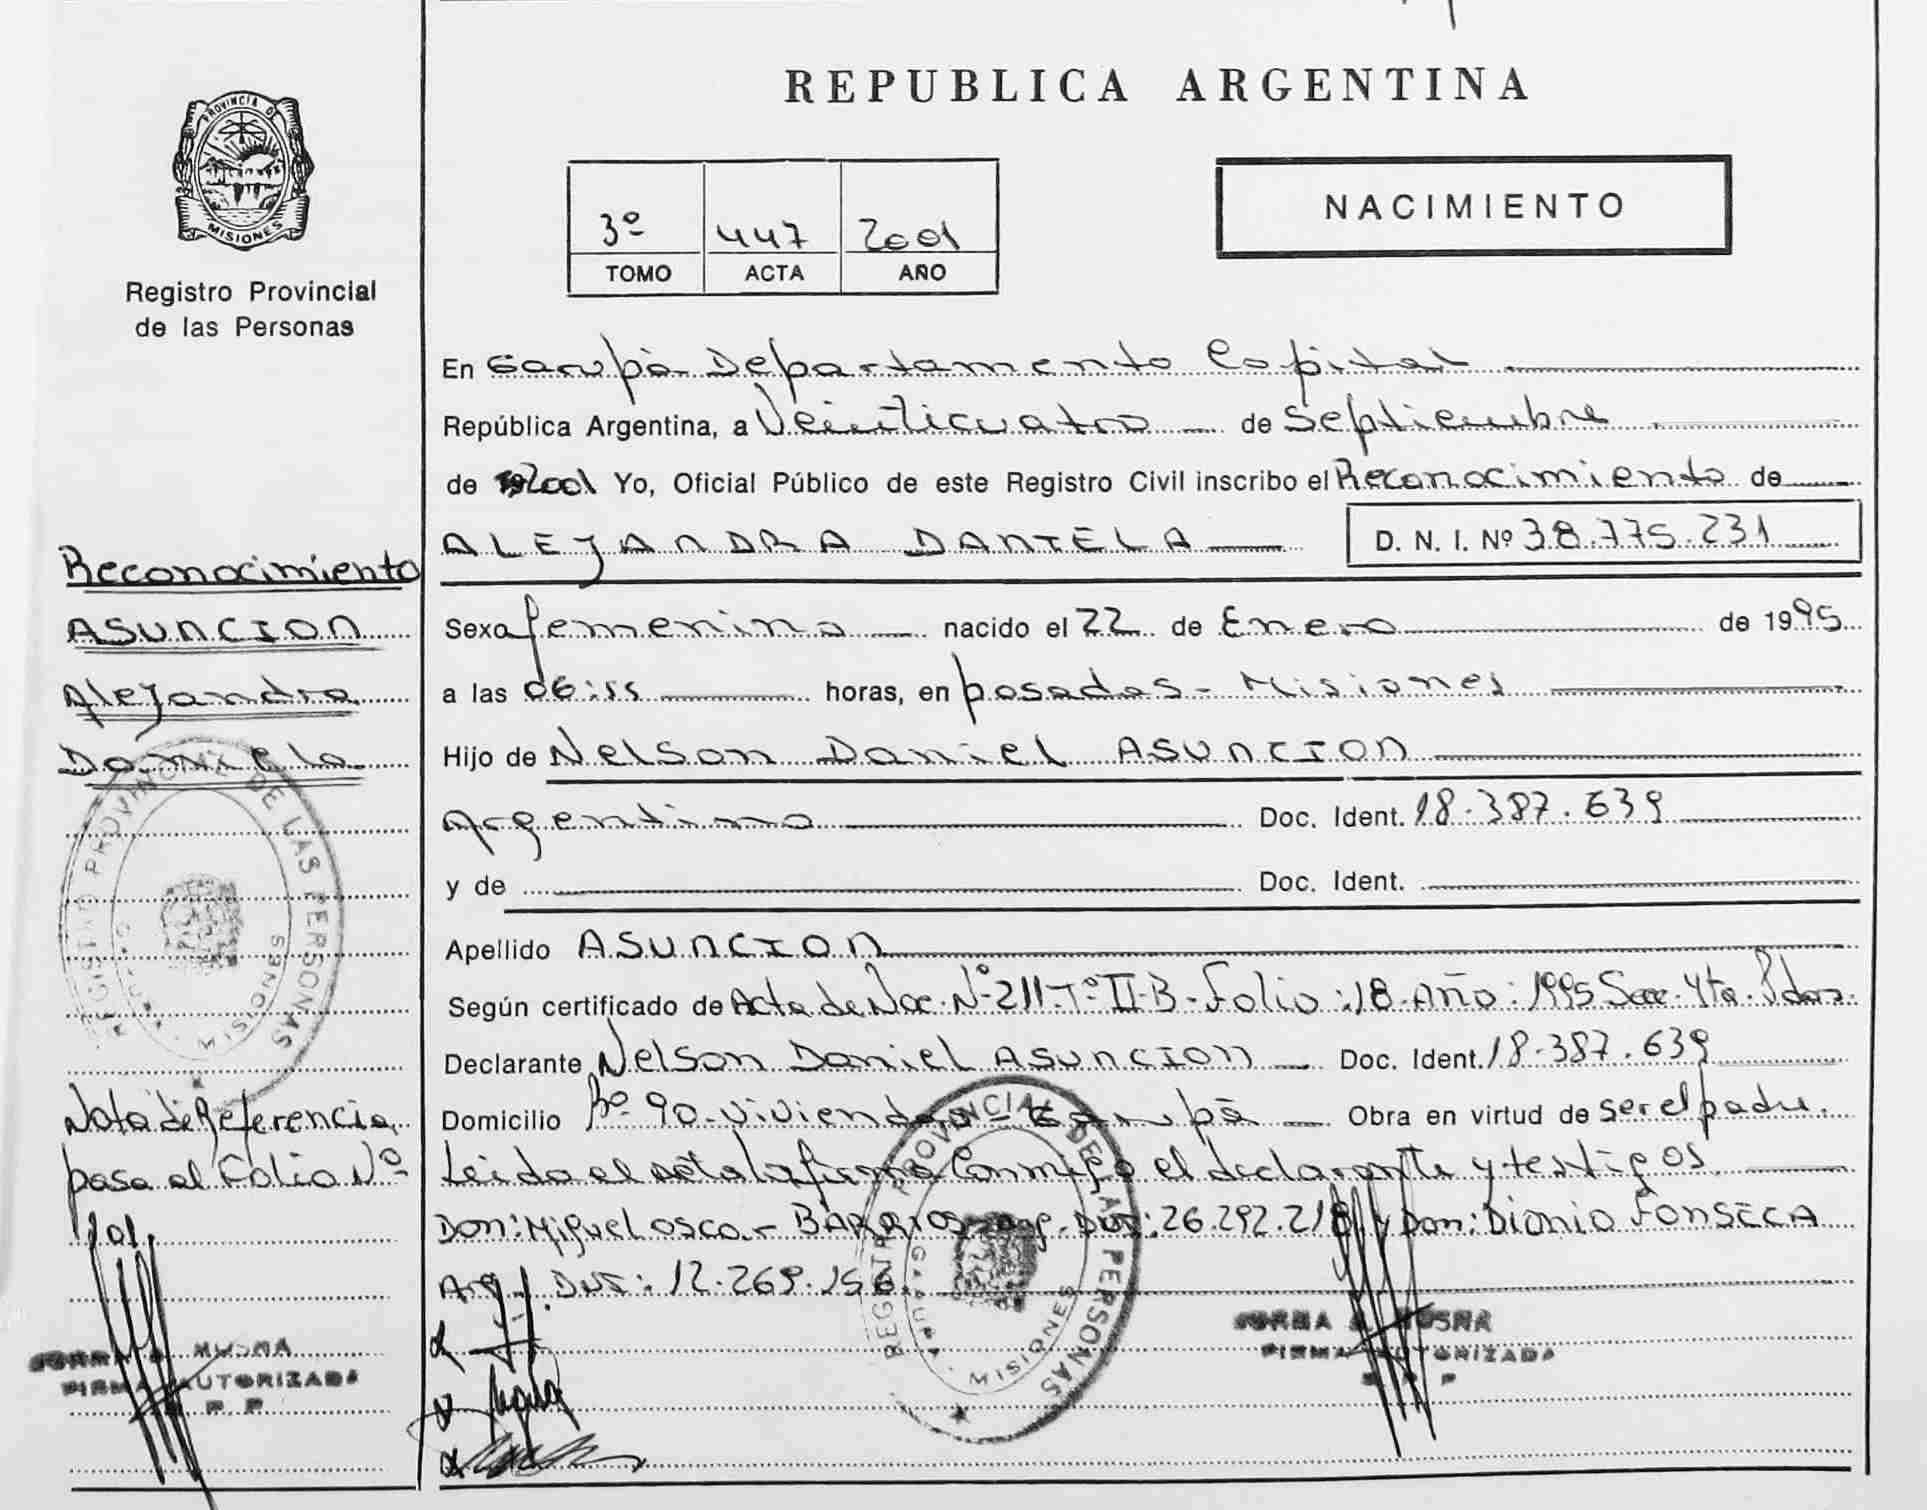 PROVINCIA DE
MISIONES
Registro Provincial
de las Personas
Reconocimiento
ASUNCION
Alejandra
Daniela
REGISTRO PROVINCIAL DE LAS PERSONAS
MISIONES
Nota de Referencia
pasa al Folio Nº
101.
MUSRA
FIRMA AUTORIZADA
R. P. P.
REPUBLICA ARGENTINA
3º 447 2001
TOMO ACTA AÑO
NACIMIENTO
En Garupá Departamento Capital
República Argentina, a Veinticuatro de Septiembre
de 2001 Yo, Oficial Público de este Registro Civil inscribo el Reconocimiento de
ALEJANDRA DANIELA D. N. I. Nº 38.775.231
Sexo femenino nacido el 22 de Enero de 1995
a las 06:55 horas, en posadas - Misiones
Hijo de Nelson Daniel ASUNCION
Argentino Doc. Ident. 18.387.639
y de Doc. Ident.
Apellido ASUNCION
Según certificado de Acta de Nac. Nº 211-Tº II-B-Folio:18-Año:1995 Secc. 4ta. Pdas.
Declarante Nelson Daniel ASUNCION Doc. Ident. 18.387.639
Domicilio Bº 90-viviendas - Garupá Obra en virtud de ser el padre.
Leida el acta la firma Conmigo el declarante y testigos
Don: Miguel Oscar BARRIOS Arg. DNI: 26.292.218 y Don: Dionio FONSECA
Arg. DNI: 12.269.156.
REGISTRO PROVINCIAL DE LAS PERSONAS
GARUPA
MISIONES
FIRMA AUTORIZADA
R. P. P.